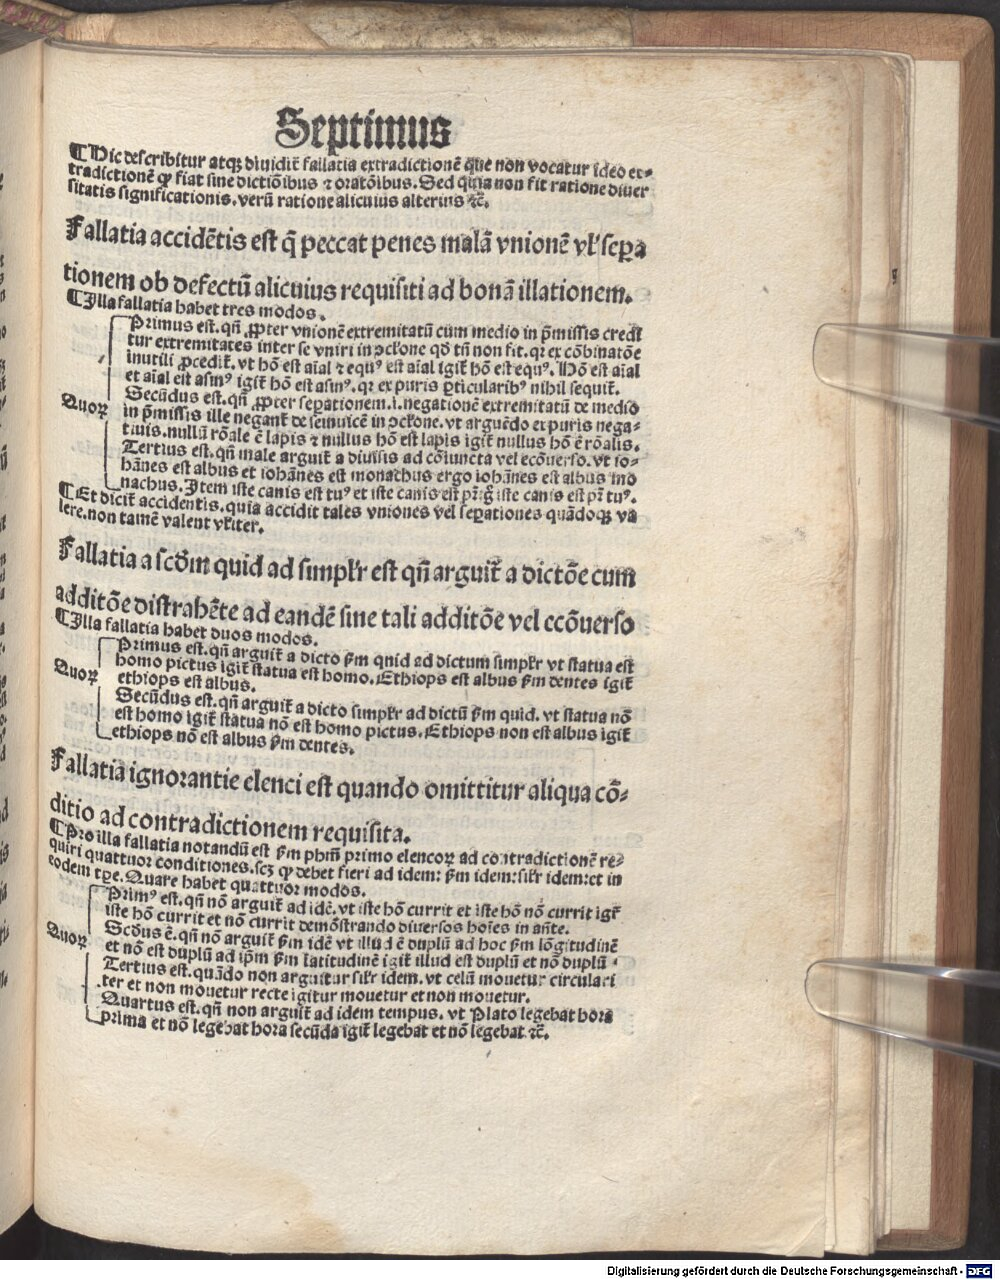 Septimus
¶Hic describitur atqꝫ diuidit̄ fallatia extradictionē que non vocatur ideo ex-
tradictionē ꝙ fiat sine dictiōibus ⁊ oratōibus. Sed quia non fit ratione diuer
sitatis significationis, verū ratione alicuius alterius ⁊c̄.
Fallatia accidētis est q̄ peccat penes malā vnionē vl' seꝑa
tionem ob defectū alicuius requisiti ad bonā illationem.
¶Illa fallatia habet tres modos.
Primus est. qn̄ ꝓpter vnionē extremitatū cum medio in p̄missis credit̄
tur extremitates inter se vniri in ꝯclōne qd̄ tn̄ non fit. qꝛ ex cōbinatōe
inutili ꝓcedit̄. vt hō est aīal ⁊ equꝰ est aīal igit̄ hō est equꝰ. Hō est aīal
et aīal est asinꝰ igit̄ hō est asinꝰ. qꝛ ex puris ꝑticularibꝰ nihil sequit̄.
Quoꝝ
Secūdus est. qn̄ ꝓpter seꝑationem .i. negationē extremitatū de medio
in p̄missis ille negant̄ de seinuicē in ꝯclōne. vt arguēdo ex puris nega-
tiuis. nullū rōale ē lapis ⁊ nullus hō est lapis igit̄ nullus hō ē rōalis.
Tertius est. qn̄ male arguit̄ a diuisis ad cōiuncta vel ecōuerso. vt io-
hānes est albus et iohānes est monachus ergo iohānes est albus mo
nachus. Item iste canis est tuꝰ et iste canis est pr̄ igr̄ iste canis est pr̄ tuꝰ.
¶Et dicit̄ accidentis. quia accidit tales vniones vel seꝑationes quādoqꝫ va
lere. non tamē valent vr̄iter.
Fallatia a scd̄m quid ad simpl'r est qn̄ arguit̄ a dictōe cum
additōe distrahēte ad eandē sine tali additōe vel ecōuerso
¶Illa fallatia habet duos modos.
Primus est. qn̄ arguit̄ a dicto ẜm quid ad dictum simpl'r vt statua est
homo pictus igit̄ statua est homo. Ethiops est albus ẜm dentes igit̄
Quoꝝ
ethiops est albus.
Secūdus est. qn̄ arguit̄ a dicto simpl'r ad dictū ẜm quid. vt statua nō
est homo igit̄ statua nō est homo pictus. Ethiops non est albus igit̄
ethiops nō est albus ẜm dentes.
Fallatia ignorantie elenci est quando omittitur aliqua cō-
ditio ad contradictionem requisita.
¶Pro illa fallatia notandū est ẜm ph̄m primo elencoꝝ ad contradictionē re-
quiri quattuor conditiones. scꝫ ꝙ debet fieri ad idem: ẜm idem: sil'r idem: et in
eodem tꝑe. Quare habet quattuor modos.
Primꝰ est. qn̄ nō arguit̄ ad idē. vt iste hō currit et iste hō nō currit igr̄
iste hō currit et nō currit demōstrando diuersos hoīes in an̄te.
Quoꝝ
Scd̄us ē. qn̄ nō arguit̄ ẜm idē vt illud ē duplū ad hoc ẜm lōgitudinē
et nō est duplū ad ip̄m ẜm latitudinē igit̄ illud est duplū et nō duplū.
Tertius est. quādo non arguitur sil'r idem. vt celū mouetur circulari
ter et non mouetur recte igitur mouetur et non mouetur.
Quartus est. qn̄ non arguit̄ ad idem tempus. vt Plato legebat hora
prima et nō legebat hora secūda igit̄ legebat et nō legebat ⁊c̄.
Digitalisierung gefördert durch die Deutsche Forschungsgemeinschaft - DFG